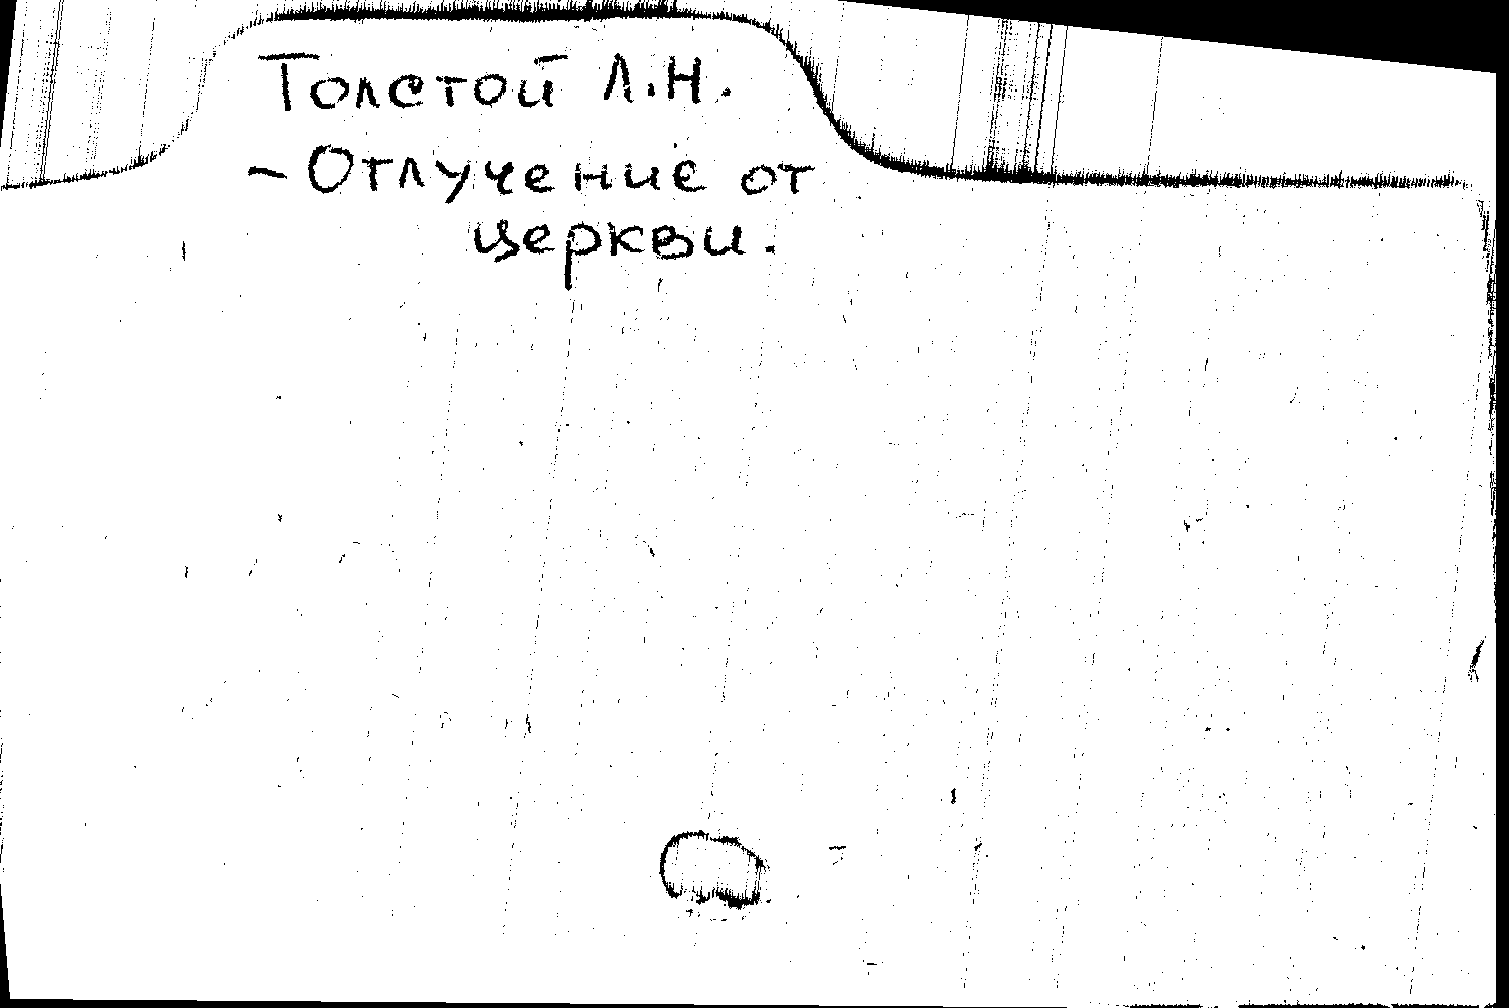 Толстой Л.Н.
- Отлучение от
церкви.